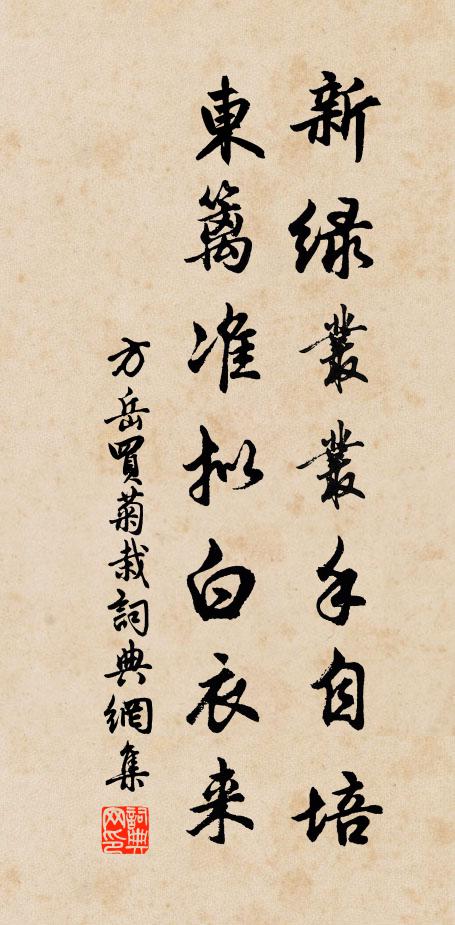 新绿叢叢手自培
東篱准拟白衣来
方岳買菊栽詞典網集
詞典网印